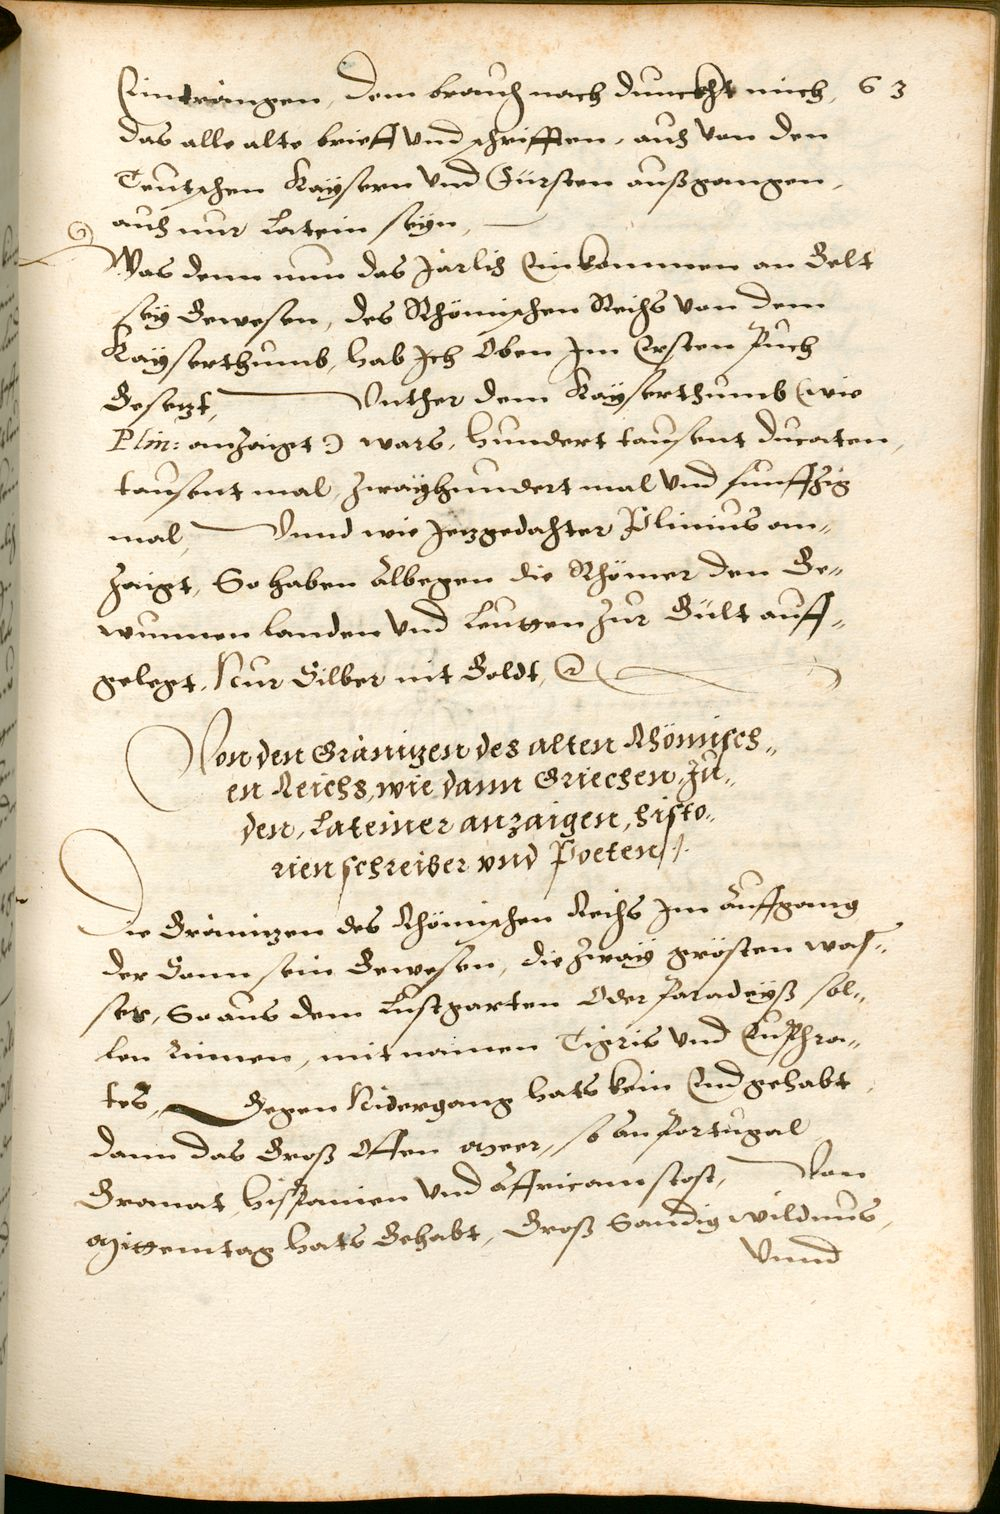 Eintrungen, dem brauch nach dunckht mich, 63
das alle alte brieff vnd schrifften, auch von den
Teutschen Kaysern vnd Fürsten außgangen,
auch nur Latein seyn,
Was denn nun das Järlich Einkommen an Gelt
sey Gewesen, des Rhömischen Reichs von dem
Kayserthumb, hab Ich Oben Im Ersten Puch
Gesetzt, Vnther dem Kayserthumb (wie
Plin: anzaigt :) wars, hundert tausent ducaten,
tausent mal, zwayhundert mal vnd funffzig
mal, Vnnd wie Jetzgedachter Plinius an-
zaigt, So haben Albegen die Rhömer den Ge-
wunnen landen vnd Leutten zur Gült auff-
gelegt, Nur Silber nit Goldt,
Von den Gränitzen des alten Rhömisch-
en Reichs, wie dann Griechen, Ju-
den, Lateiner anzaigen, histo-
rienschreiber vnd Poeten.
Die Gränitzen des Rhömischen Reichs Im Auffgang
der Sonn sein Gewesen, die zway grösten was-
ser, So aus dem Lustgarten Oder Paradeyß sol-
len Rinnen, mit namen Tigris vnd Euphra-
tes, Gegen Nidergang hats kein End gehabt,
dann das Groß Offen Meer, so an Portugal
Granat, Hispanien vnd Affricam stost, Von
Mittemtag hats Gehabt, Groß Sandig wildnus,
Vnnd